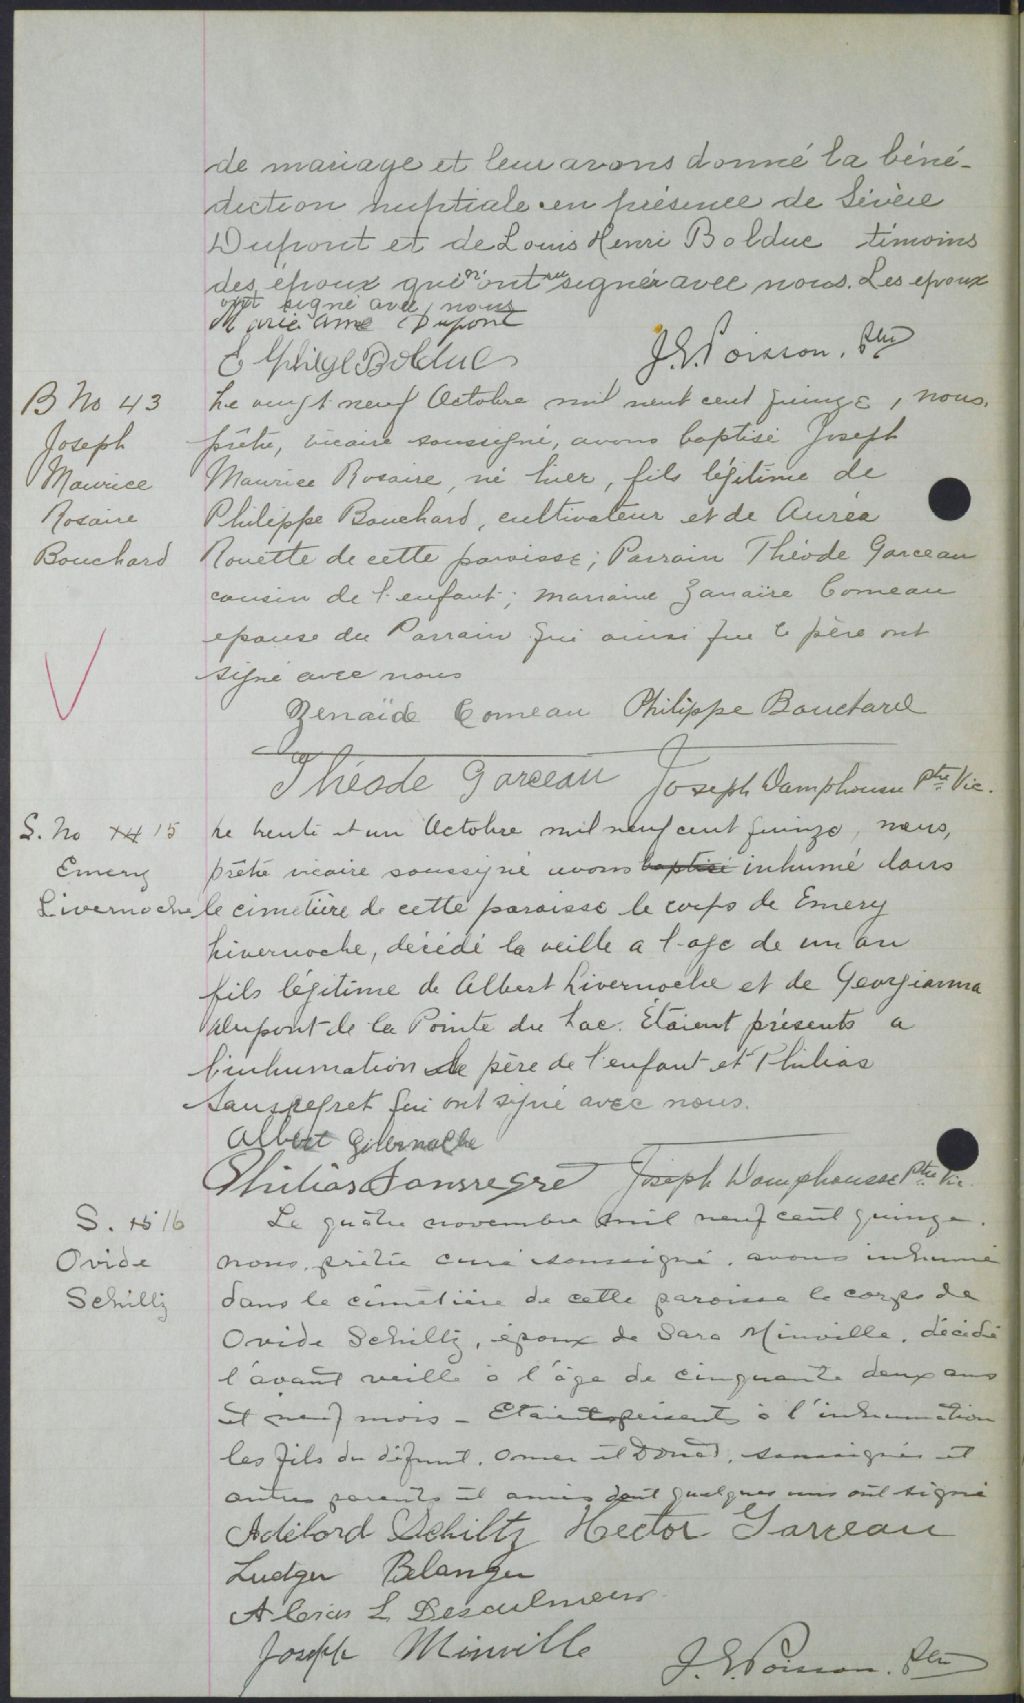 de mariage et leur avons donné la béné-
diction nuptiale en présence de Sévère
Dupont et de Louis Henri Bolduc témoins
des époux qui n'ont su signer avec nous. Les epoux
ont signé avec nous
Marie Ame Dupont
Elphège Bolduc J. E. Poisson. Ptre
B No 43
Joseph
Maurice
Rosaire
Bouchard
Le vingt neuf Octobre mil neuf cent quinze, nous,
prêtre, vicaire soussigné, avons baptisé Joseph
Maurice Rosaire, né hier, fils légitime de
Philippe Bouchard, cultivateur et de Auréa
Rouette de cette paroisse; Parrain Théode Garceau
cousin de l'enfant; marraine Zanaïre Comeau
epouse du Parrain qui ainsi que le père ont
signé avec nous
Zenaïde Comeau Philippe Bouchard
Théode Garceau Joseph Damphousse Ptre Vic.
S. No 14 15
Emery
Livernoche
Le trente et un Octobre mil neuf cent quinze, nous,
prêtre vicaire soussigné avons baptisé inhumé dans
le cimetière de cette paroisse le corps de Emery
Livernoche, décédé la veille a l'age de un an
fils légitime de Albert Livernoche et de Georgianna
Dupont de la Pointe du Lac. Étaient présents a
l'inhumation le père de l'enfant et Philias
Sansregret qui ont signé avec nous.
Albert Givernoche
Philias Sansregre Joseph Damphousse Ptre Vic.
S. 15 16
Ovide
Schiltz
Le quatre novembre mil neuf cent quinze.
nous, prêtre curé soussigné, avons inhumé
dans le cimetière de cette paroisse le corps de
Ovide Schiltz, époux de Sara Minville, décédé
l'avant veille à l'âge de cinquante deux ans
et neuf mois - Etaient présents à l'inhumation
les fils du défunt, Omer et Donat, soussignés et
autres parents et amis dont quelques uns ont signé
Adélord Schiltz Hector Garceau
Ludger Belanger
Alexis L Desaulniers
Joseph Minville J. E. Poisson. Ptre